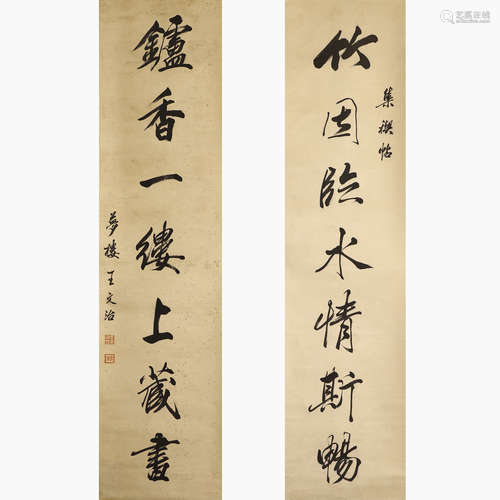 竹因臨水情斯暢
集禊帖
鑪香一縷上藏書
夢樓王文治
艺狐在线